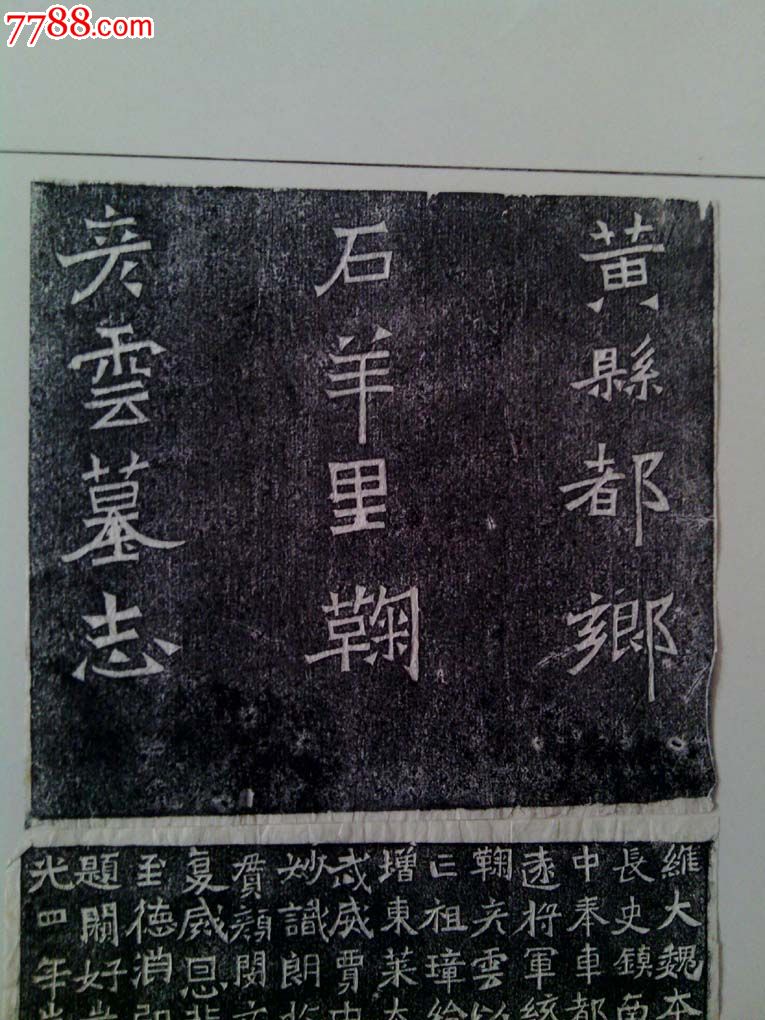 7788.com
黄縣都鄉
石羊里鞠
彥雲墓志
維大魏本
長史鎮南
中奉車都
遠將軍統
鞠彥雲以
亡祖璋給
增東萊太
武威賈中
妙識朗
賈顏閔
夏威恩
至德消
題闕好
光四年歲